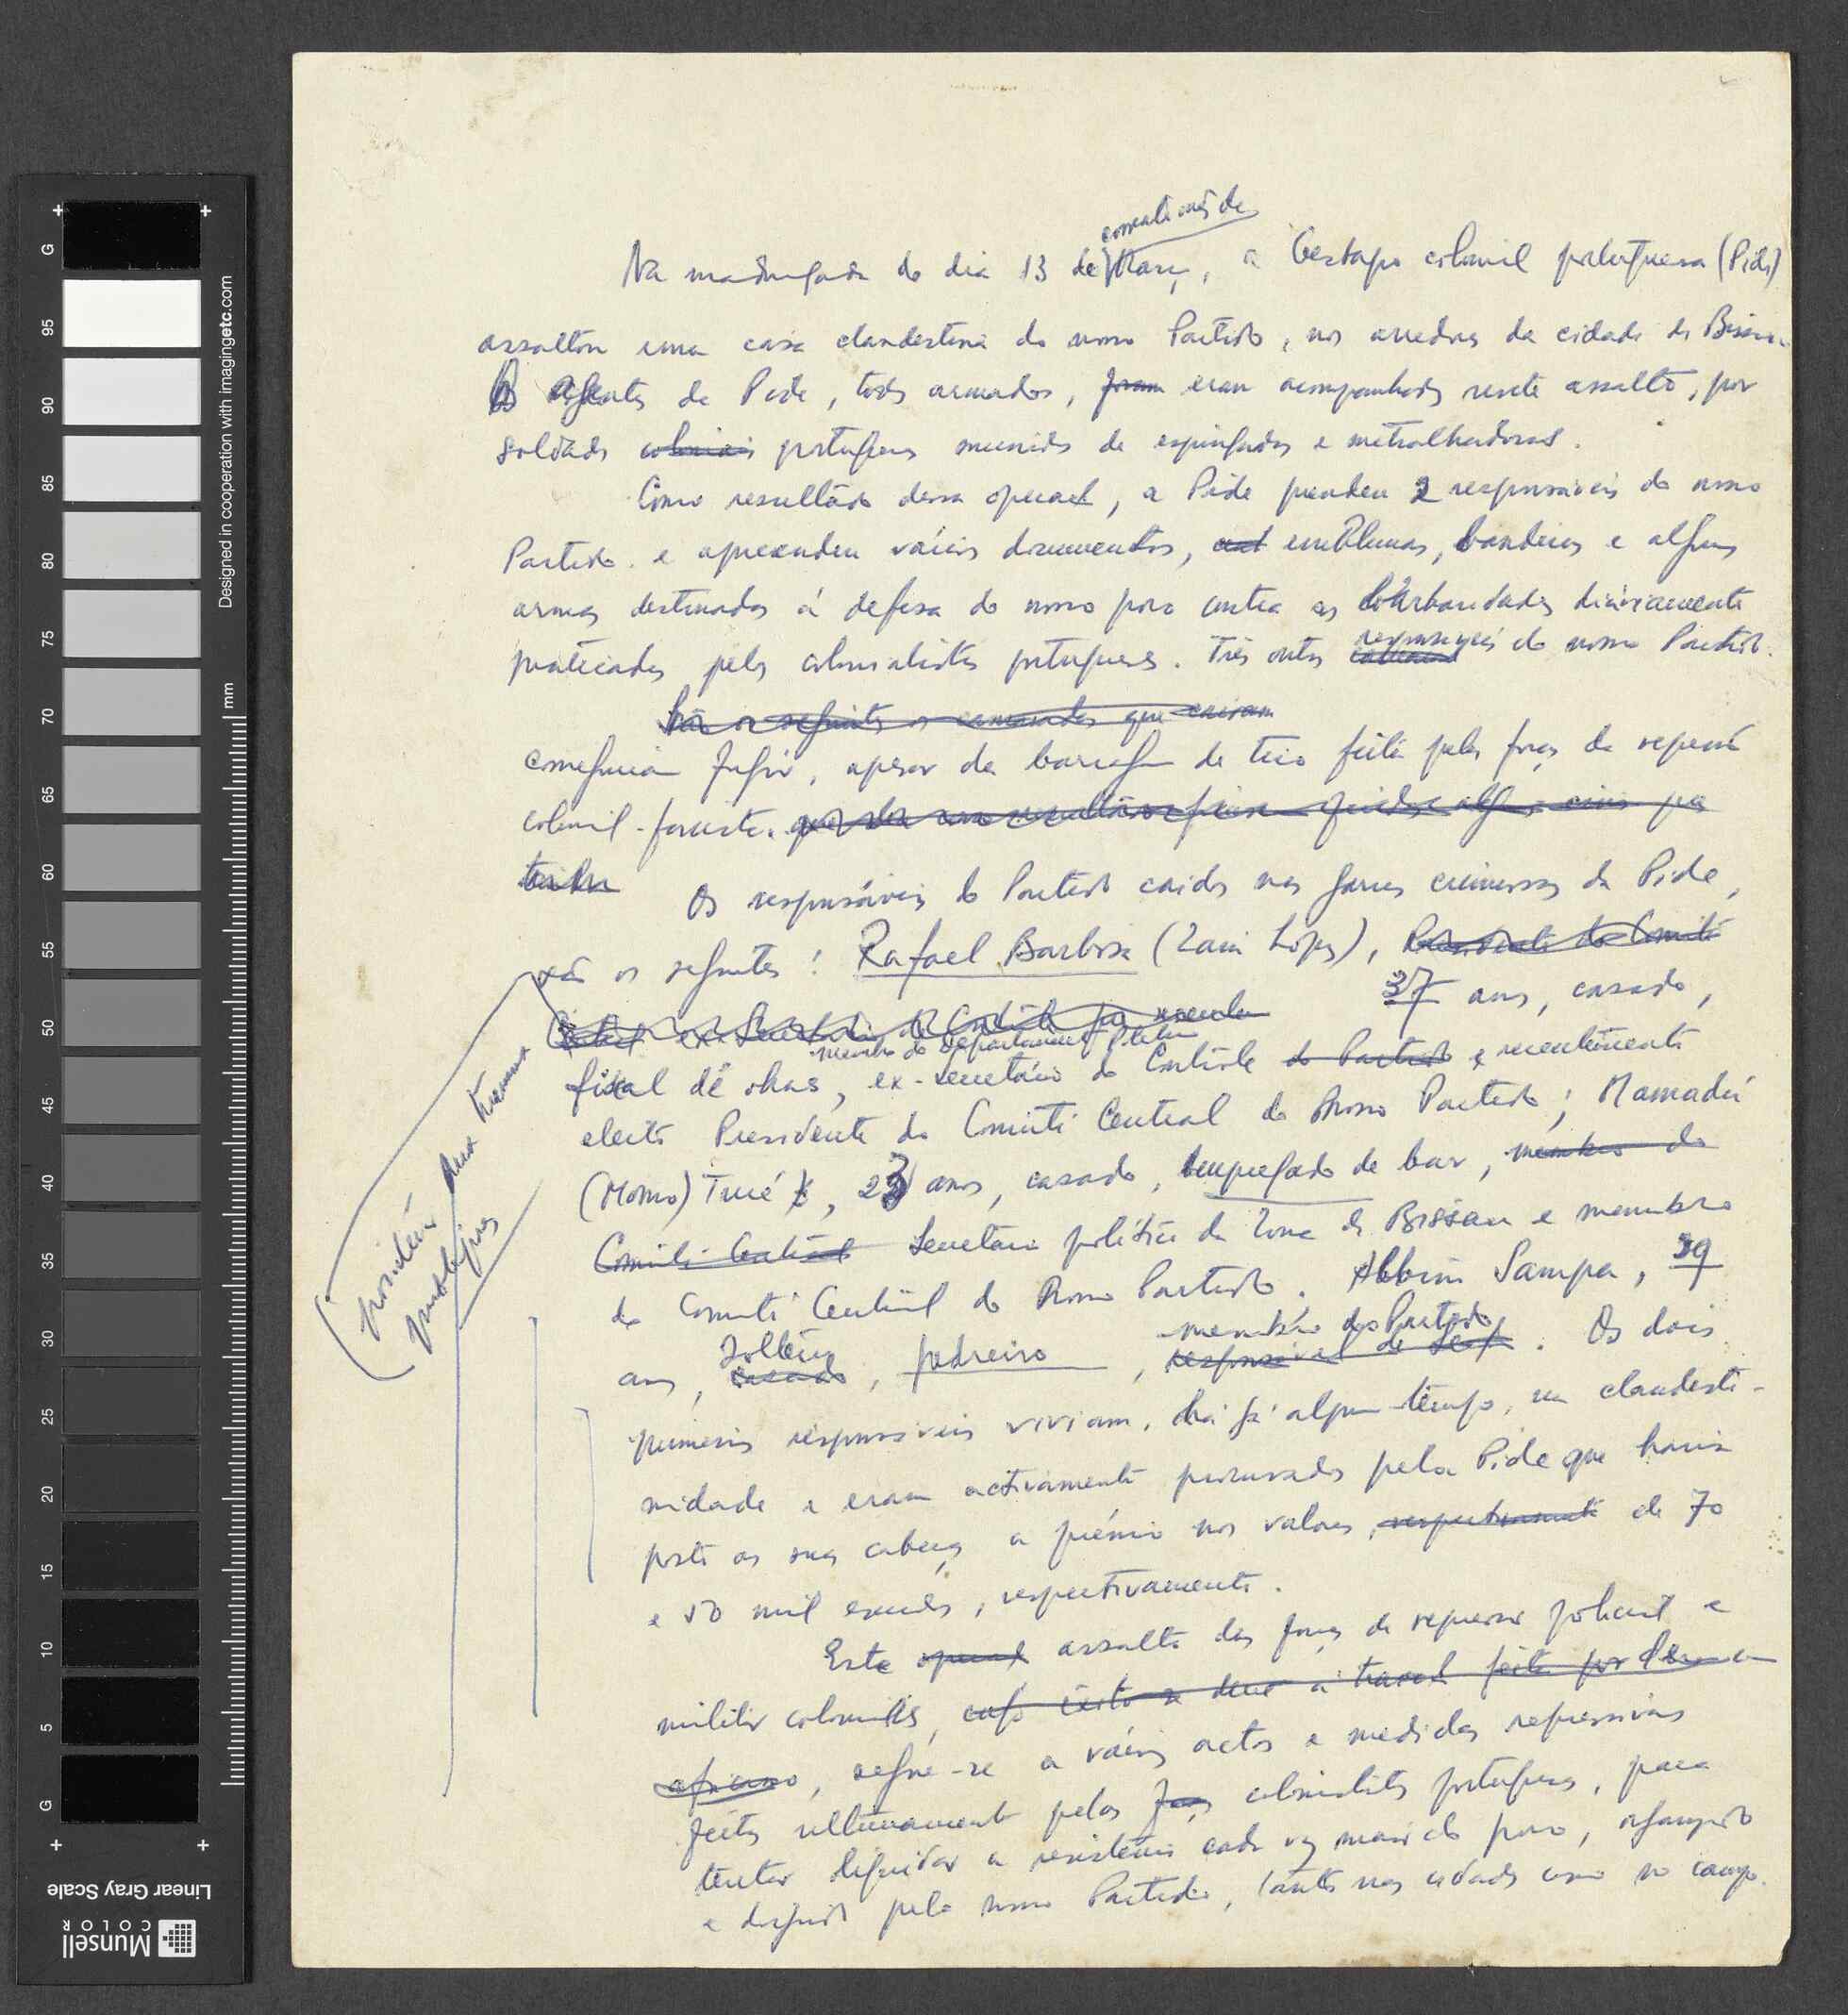 corrente mês de
Na madrugada do dia 13 de Março, a Gestapo colonial portuguesa (Pide)
assaltou uma casa clandestina do nosso Partido, nos arredores da cidade de Bissau.
Os Agentes da Pide, todos armados, foram eram acompanhados neste assalto, por
soldados coloniais portugueses munidos de espingardas e metralhadoras.
Como resultado dessa operação, a Pide prendeu 2 responsáveis do nosso
Partido e apreendeu vários documentos, emblemas, bandeiras e algumas
armas destinadas à defesa do nosso povo contra as barbaridades diàriamente
praticadas pelos colonialistas portugueses. Três outros responsáveis do nosso Partido
São os seguintes os camaradas que caíram
conseguiram fugir, apesar da barragem de tiro feita pelas forças da repressão
colonial-fascista.
Os responsáveis do Partido caídos nas garras criminosas da Pide,
são os seguintes: Rafael Barbosa (Zain Lopes), Presidente do Comité
37 anos, casado,
Central ex-Secretário do Contrôle
membro do Departamento
fiscal de obras, ex-secretário do Contrôle do Partido e recentemente
eleito Presidente do Comité Central do nosso Partido; Mamadú
(Momo) Turé, 23 anos, casado, empregado de bar, membro do
Comité Central Secretário político da Zona de Bissau e membro
do Comité Central do nosso Partido. Albino Sampa, 39
solteiro
membro do Partido
anos, casado, pedreiro, responsável de . Os dois
primeiros responsáveis viviam, há já algum tempo, na clandesti-
nidade e eram activamente procurados pela Pide que havia
posto as suas cabeças a prémio nos valores, respectivamente de 70
e 50 mil escudos, respectivamente.
Este assalto das forças de repressão policial e
militar coloniais, cujo êxito se deve à traição feita por
africano, segue-se a vários actos e medidas repressivas
feitos ultimamente pelos colonialistas portugueses, para
tentar liquidar a resistência cada vez maior do povo, organizado
e dirigido pelo nosso Partido, tanto nas cidades como no campo.
G
95
90
85
80
75
70
65
60
55
50
45
40
35
30
25
20
15
10
5
G
mm
Designed in cooperation with imagingetc.com
Linear Gray Scale
Munsell
COLOR